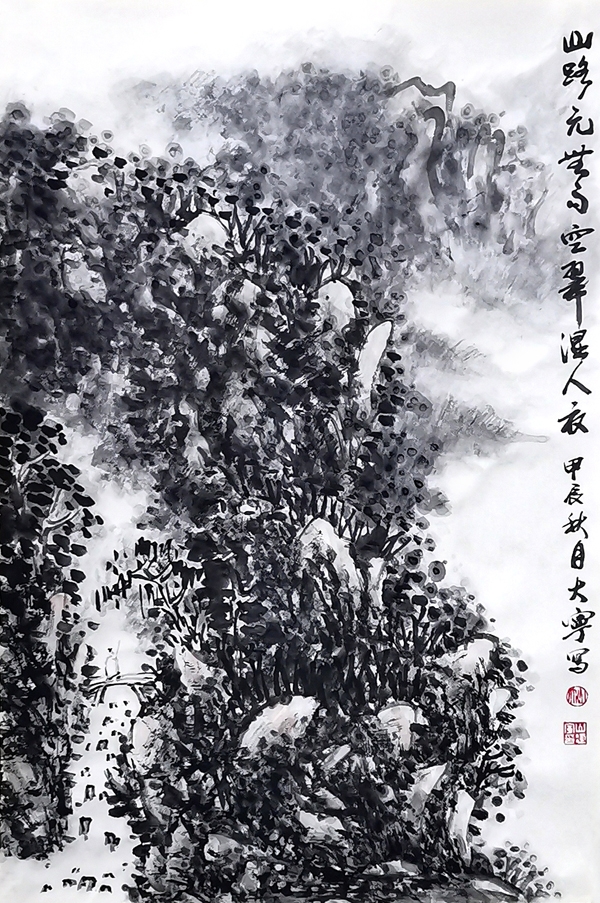 山路元無雨空翠湿人衣 甲辰秋月大寧写